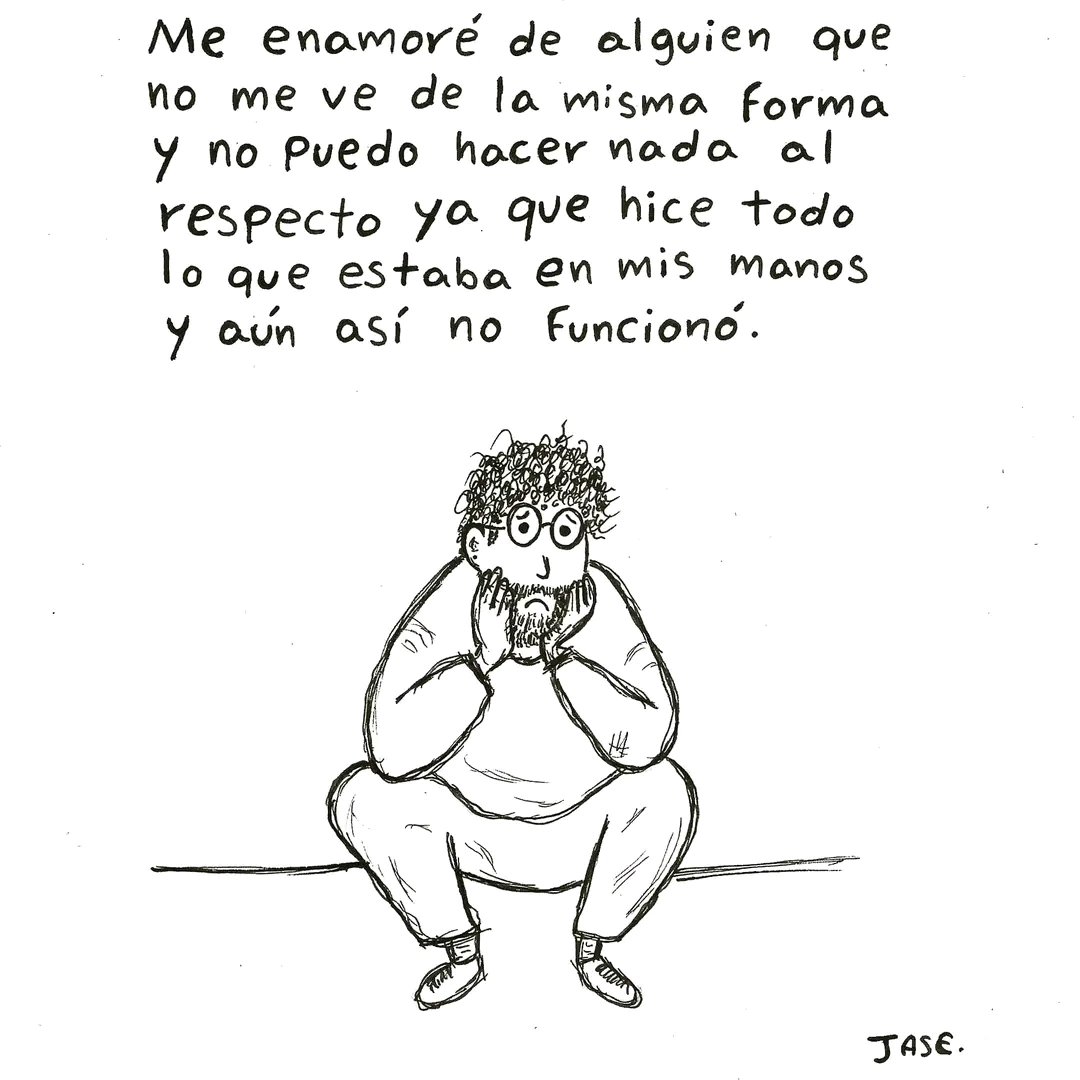 Me enamoré de alguien que
no me ve de la misma forma
y no puedo hacer nada al
respecto ya que hice todo
lo que estaba en mis manos
y aún así no funcionó.
JASE.